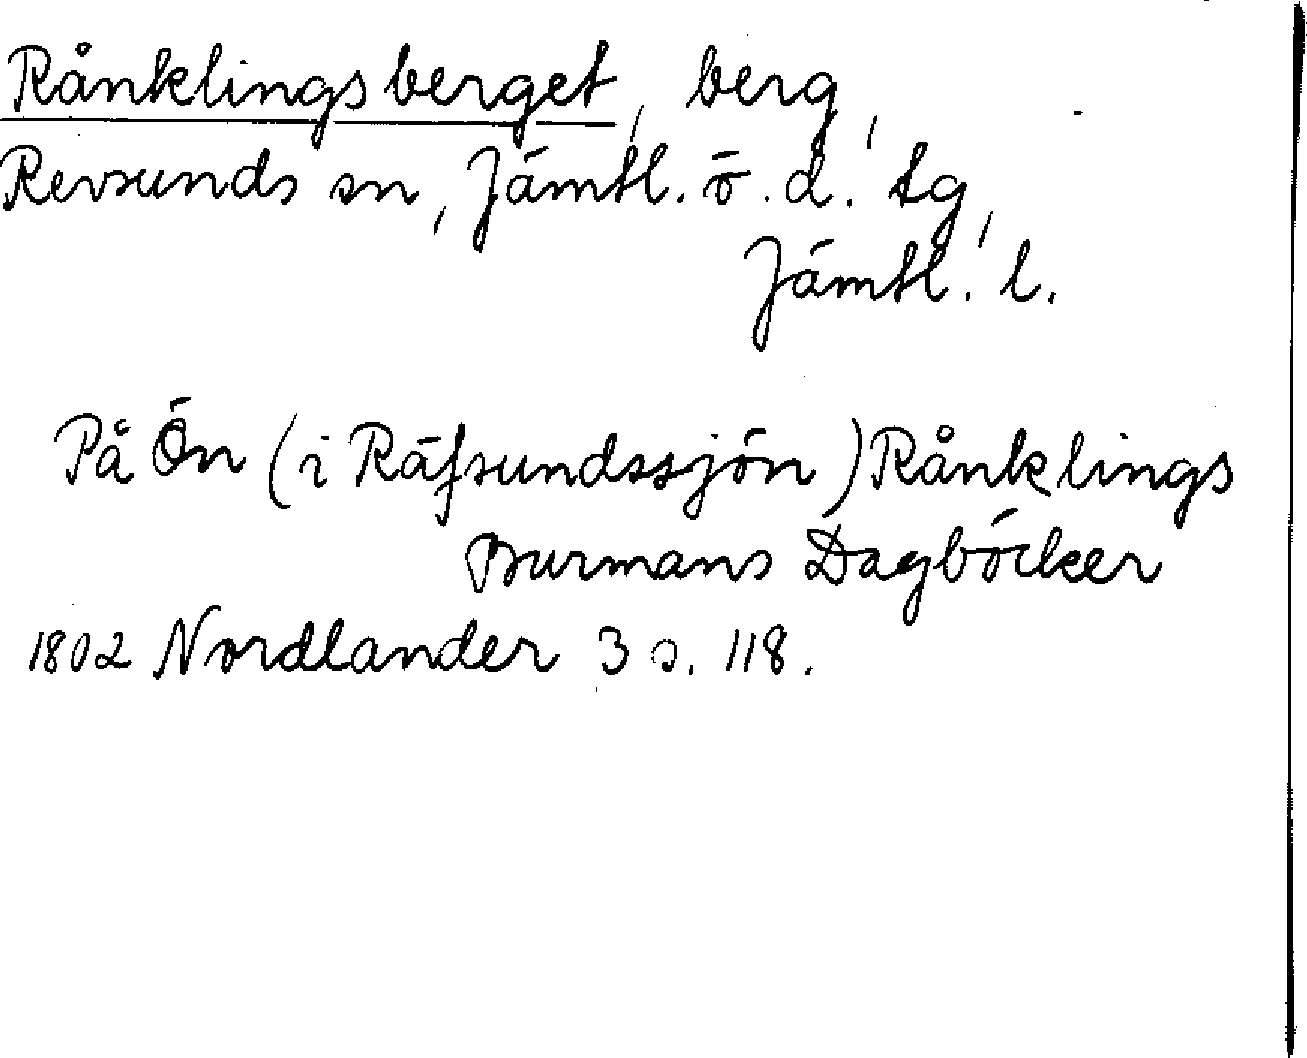 Rånklingsberget, berg,
Revsunds sn, Jämtl. ö. d. tg,
Jämtl. l.
På Ön (i Räfsundssjön) Rånklings
Burmans Dagböcker
1802 Nordlander 3 s. 118.